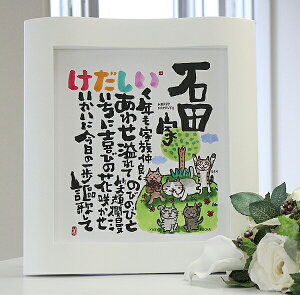 石田家
HAPPY FAMILY
いく年も家族仲良くのびのびと
しあわせ溢れて笑顔爛漫
だいちに喜びの花咲かせ
けいかいに今日の一歩